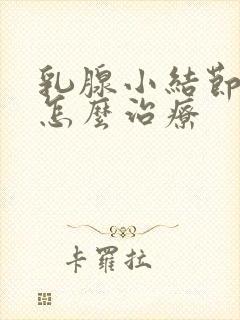 乳腺小結節
怎麼治療
卡羅拉